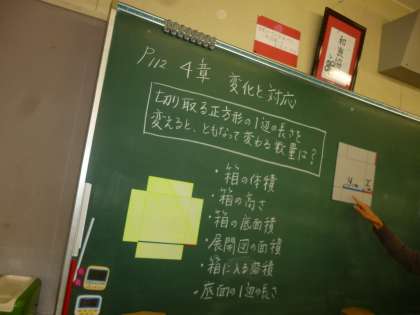 P112 4章 変化と対応
切り取る正方形の1辺の長さを
変えると、ともなって変わる数量は?
・箱の体積
・箱の高さ
・箱の底面積
・展開図の面積
・箱に入る容積
・底面の1辺の長さ